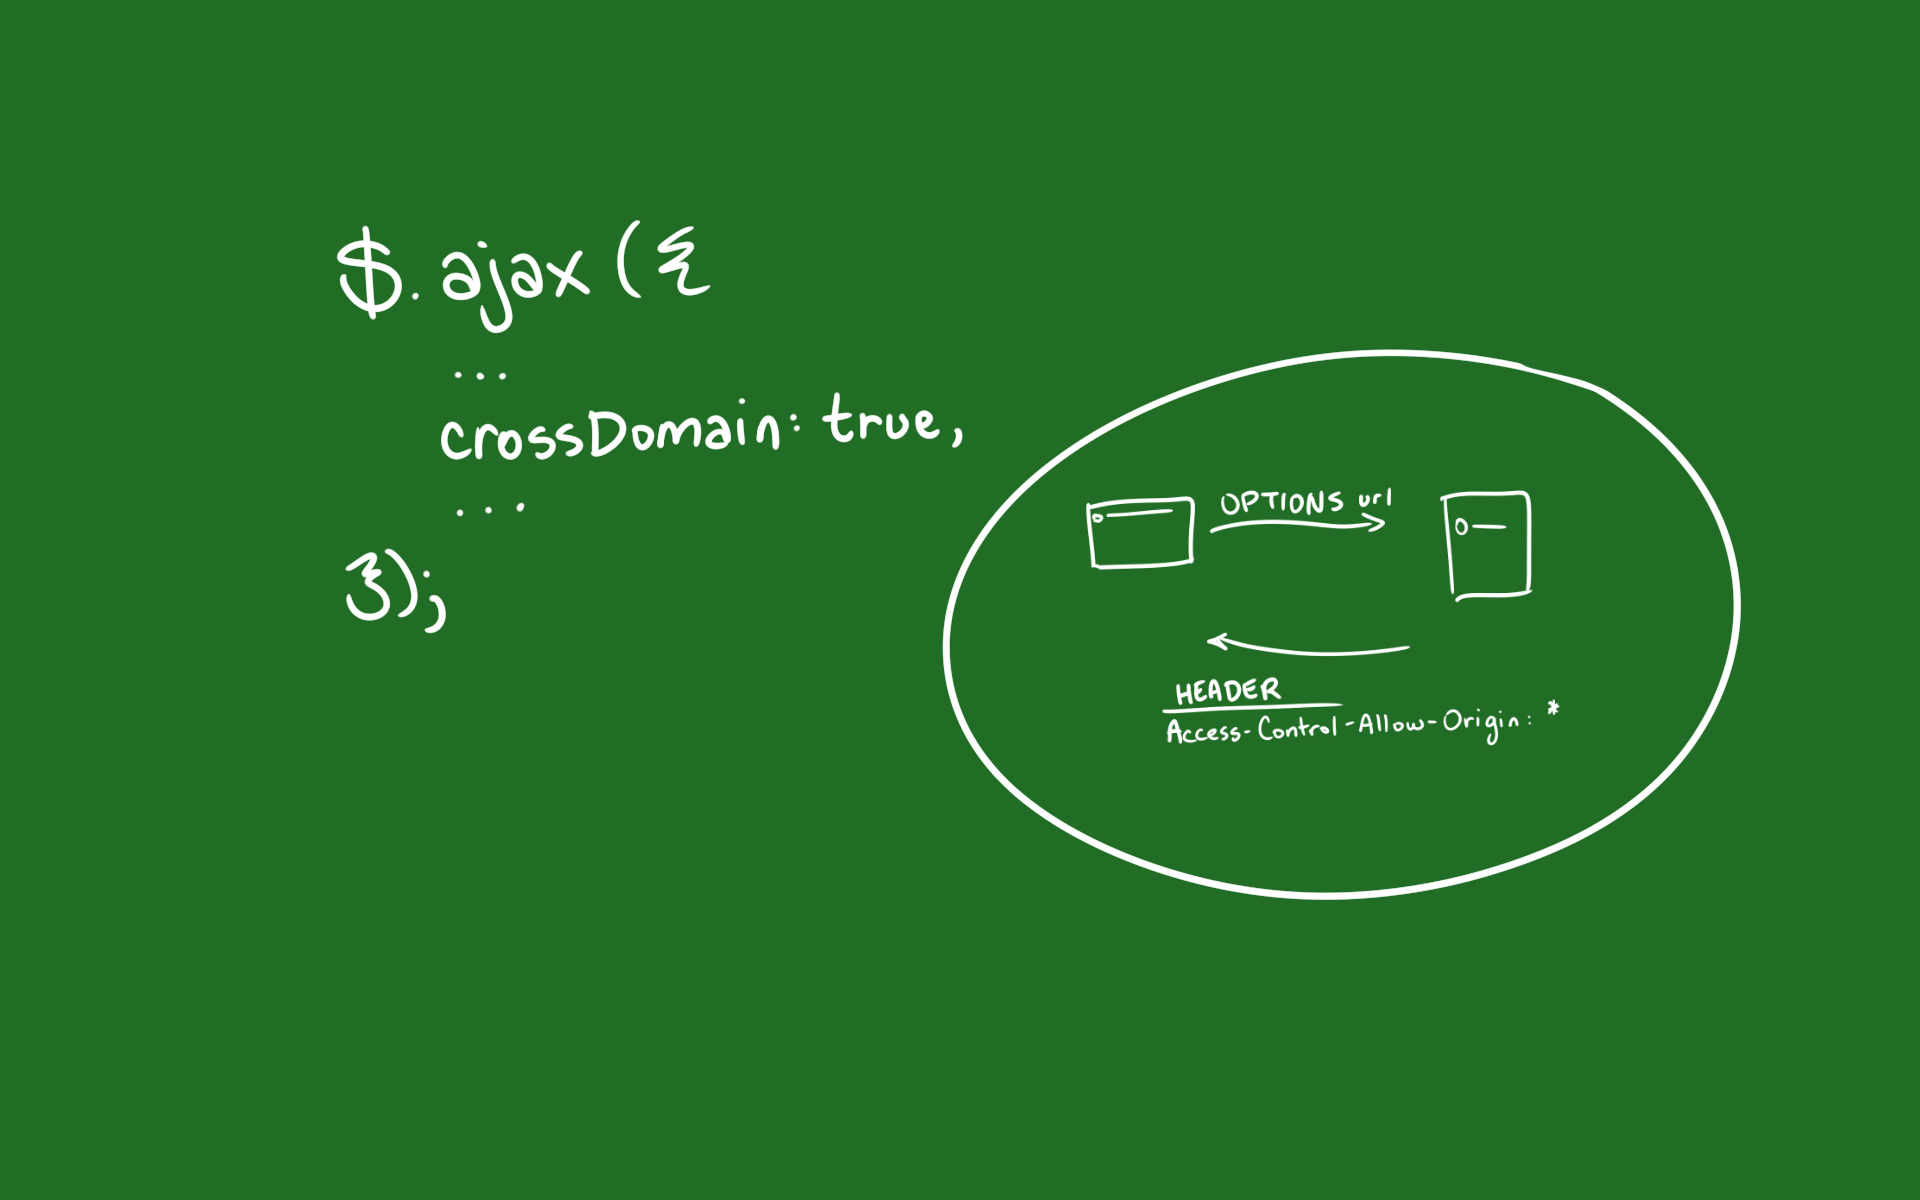 $. ajax ({
...
crossDomain: true,
...
});
OPTIONS url
HEADER
Access-Control-Allow-Origin: *